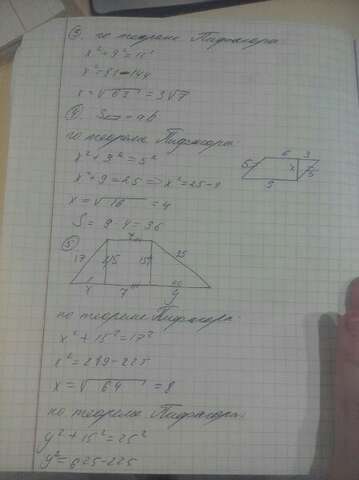 ③ по теореме Пифагора
x² + 9² = 12²
x² = 81 - 144
x = √63 = 3√7
④ S▱ = ab
по теореме Пифагоры
6 3
5 x 5
9
x² + 3² = 5²
x² + 9 = 25 => x² = 25 - 9
x = √16 = 4
S = 9 · 4 = 36
⑤ 7
17 15 15 25
x 7 y
по теореме Пифагора:
x² + 15² = 17²
x² = 289 - 225
x = √64 = 8
по теореме Пифагора:
y² + 15² = 25²
y² = 625 - 225